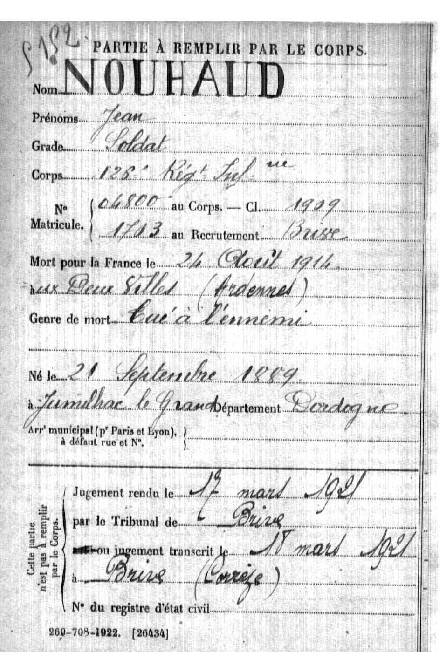 5182
PARTIE À REMPLIR PAR LE CORPS.
Nom NOUHAUD
Prénoms Jean
Grade Soldat
Corps 126e Régt Infie
No 04800 au Corps. — Cl. 1909
Matricule. 1713 au Recrutement Brive
Mort pour la France le 24 Août 1914
aux Deux Villes (Ardennes)
Genre de mort Tué à l'ennemi
Né le 21 Septembre 1889
à Jumilhac le Grand Département Dordogne
Arrt municipal (pr Paris et Lyon),
à défaut rue et No.
Cette partie
n'est pas à remplir
par le Corps.
Jugement rendu le 17 mars 1921
par le Tribunal de Brive
ou jugement transcrit le 18 mars 1921
à Brive (Corrèze)
No du registre d'état civil
269-708-1922. [26434]